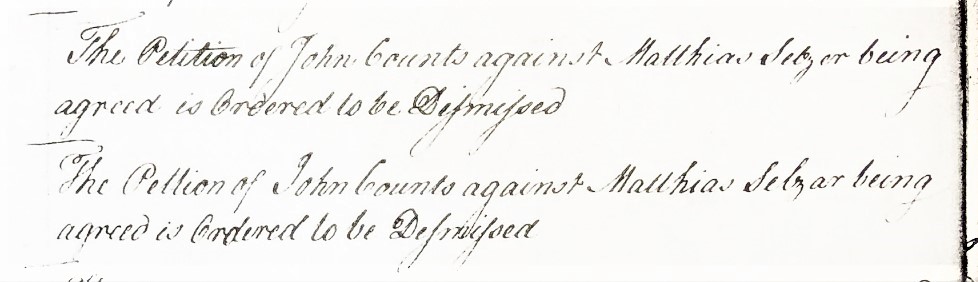 The Petition of John Counts against Matthias Selzer being
agreed is Ordered to be Desmissed
The Petlion of John Counts against Matthias Selzar being
agreed is Ordered to be Desmissed